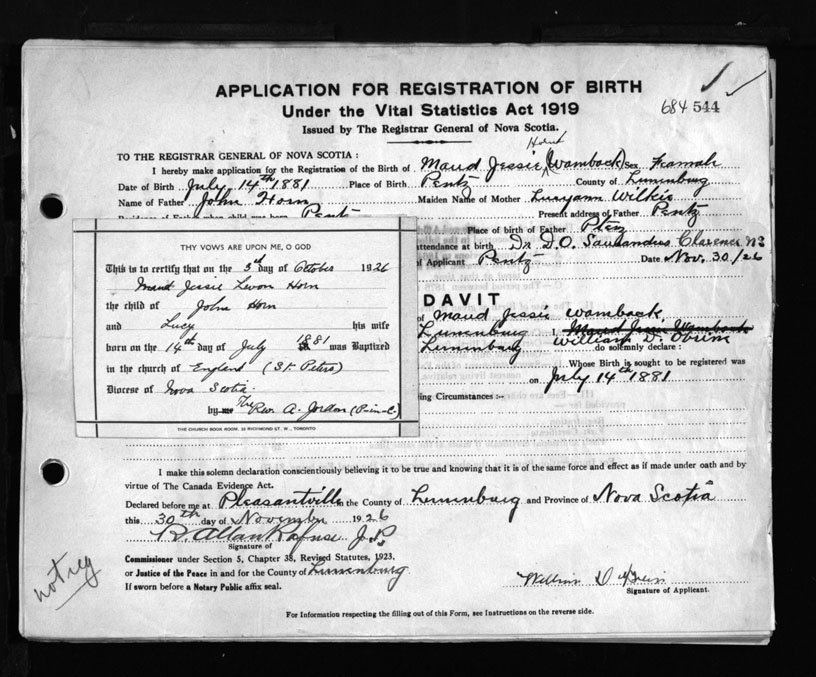 APPLICATION FOR REGISTRATION OF BIRTH
Under the Vital Statistics Act 1919
684 544
Issued by The Registrar General of Nova Scotia.
TO THE REGISTRAR GENERAL OF NOVA SCOTIA :
I hereby make application for the Registration of the Birth of Maud Jessie (Wamback) Sex Femah
Date of Birth July 14th 1881 Place of Birth Pentz County of Lunenburg
Name of Father John Horn Maiden Name of Mother Lucyann Wilkie
Pentz Present address of Father Pentz
Place of birth of Father
attendance at birth Dr. D.O. Clarence NS
of Applicant Pentz Date Nov. 30/26
THY VOWS ARE UPON ME, O GOD
This is to certify that on the 3rd day of October 1926
Maud Jessie Horn
the child of John Horn
and Lucy his wife
born on the 14th day of July 1881 was Baptized
in the church of England (St. Peters)
Diocese of Nova Scotia.
by me The Rev. A. Jordan
THE CHURCH BOOK ROOM, 32 RICHMOND ST. W., TORONTO
DAVIT
of Maud Jessie Wamback
Lunenburg I, Maud Jessie Wamback
Lunenburg William D. do solemnly declare :
Whose Birth is sought to be registered was
on July 14th 1881
ing Circumstances :-
I make this solemn declaration conscientiously believing it to be true and knowing that it is of the same force and effect as if made under oath and by
virtue of The Canada Evidence Act.
Declared before me at Pleasantville in the County of Lunenburg and Province of Nova Scotia
this 30th day of November 1926
R. Allan J.P.
Signature of
Commissioner under Section 5, Chapter 38, Revised Statutes, 1923,
or Justice of the Peace in and for the County of Lunenburg
If sworn before a Notary Public affix seal.
William D
Signature of Applicant.
not reg
For Information respecting the filling out of this Form, see Instructions on the reverse side.